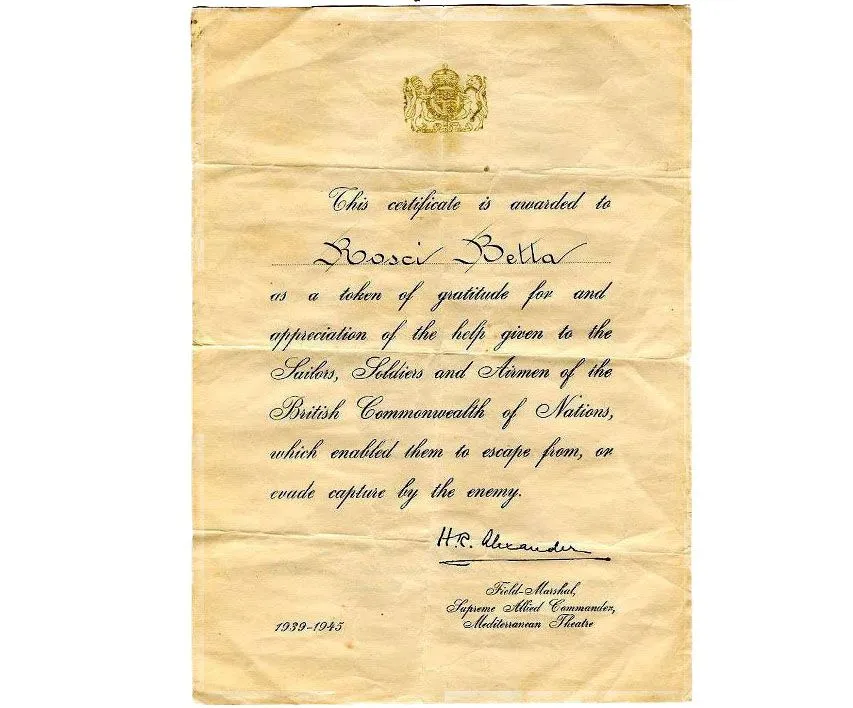 This certificate is awarded to
Rosci Betta
as a token of gratitude for and
appreciation of the help given to the
Sailors, Soldiers and Airmen of the
British Commonwealth of Nations,
which enabled them to escape from, or
evade capture by the enemy.
H.R. Alexander
Field-Marshal,
Supreme Allied Commander,
Mediterranean Theatre
1939-1945